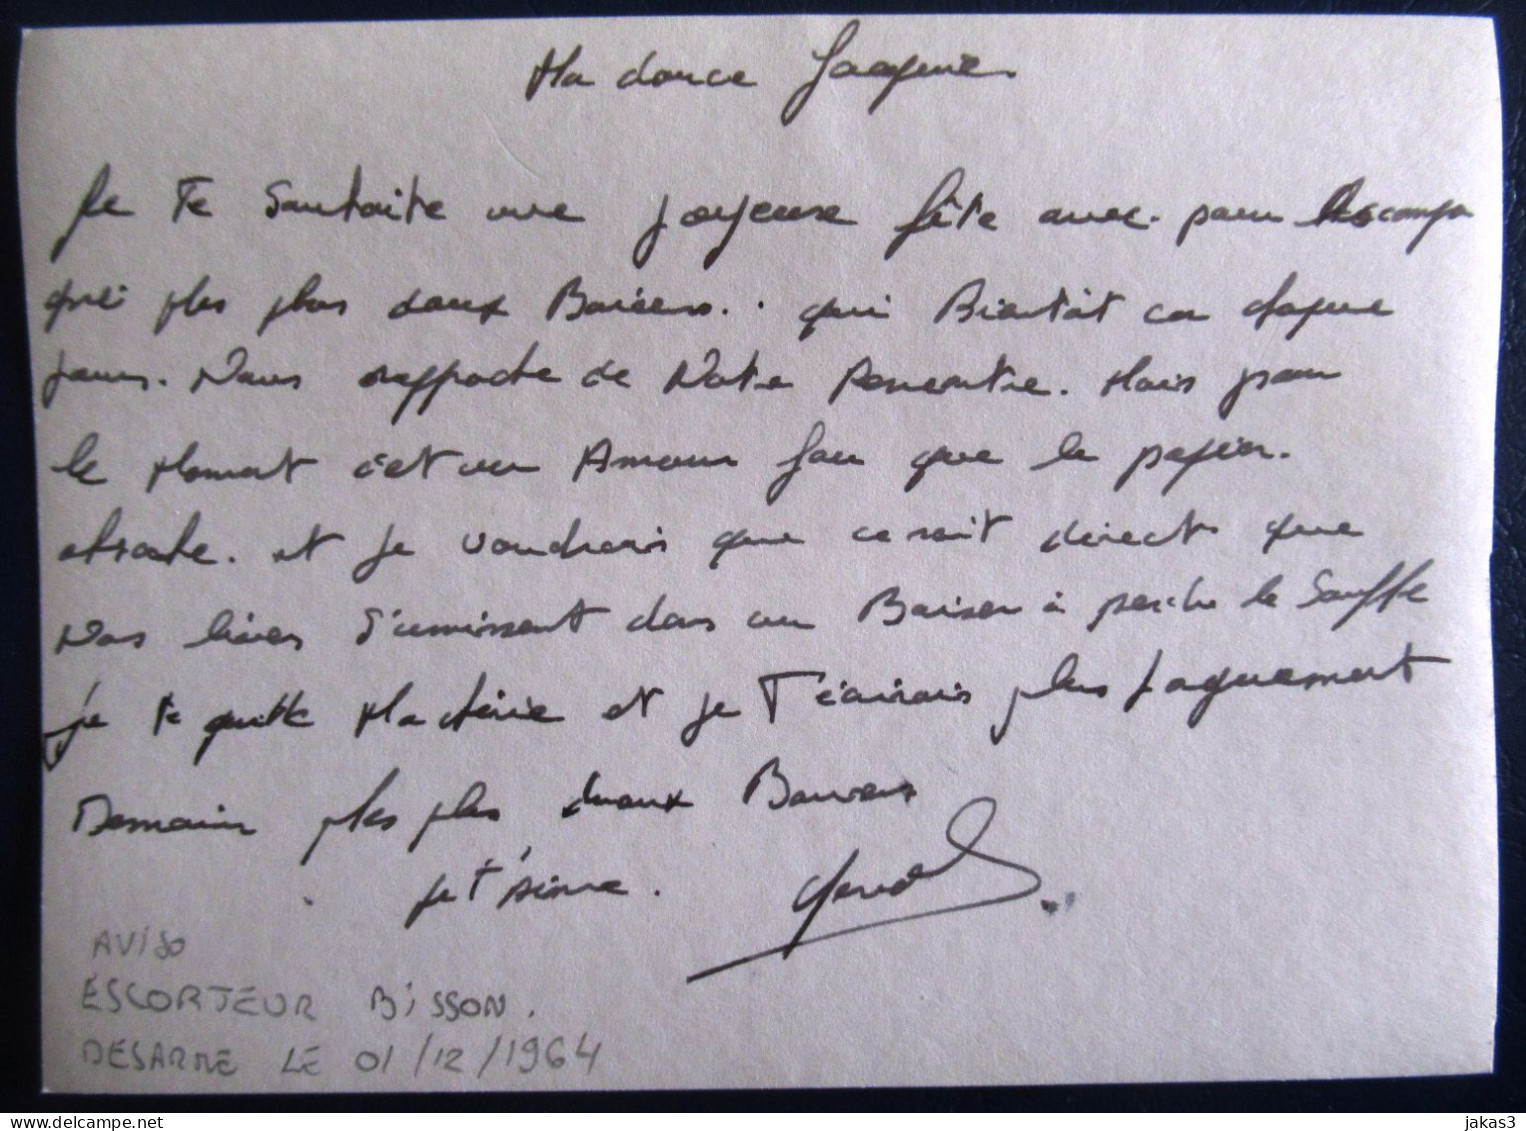 Ma douce Jacquie.
Je Te Souhaite une joyeuse fête avec. pour
que plus doux Baisers.. qui Bientôt ca chaque
jours. Nous rapproche de Notre Rencontre. Mais pour
le Moment c'est un Amour fou que le papier.
et je voudrais que ce soit direct que
Nos lèvres s'unissent dans un Baiser à perdre le Souffle
je te quitte Ma chérie et je T'écrirais plus longuement
Demain plus doux Baisers
je t'aime.
AVISO
ESCORTEUR BISSON.
DESARME LE 01/12/1964
delcampe.net
jakas3